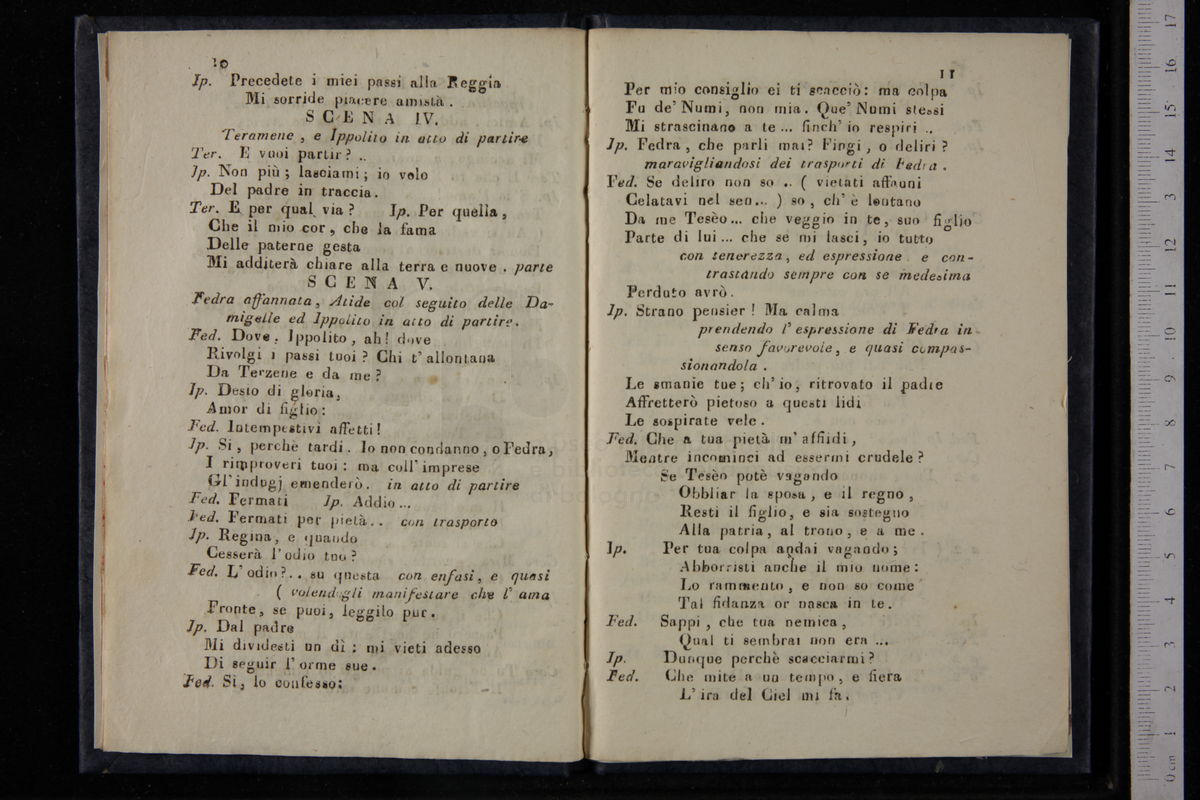 10
Ip. Precedete i miei passi alla Reggia
Mi sorride piacere amistà .
SCENA IV.
Teramene , e Ippolito in atto di partire
Ter. E vuoi partir ? ..
Ip. Non più ; lasciami ; io volo
Del padre in traccia .
Ter. E per qual via ? Ip. Per quella ,
Che il mio cor , che la fama
Delle paterne gesta
Mi additerà chiare alla terra e nuove . parte
SCENA V.
Fedra affannata , Atide col seguito delle Da-
migelle ed Ippolito in atto di partire .
Fed. Dove , Ippolito , ah ! dove
Rivolgi i passi tuoi ? Chi t' allontana
Da Terzene e da me ?
Ip. Desio di gloria ,
Amor di figlio :
Fed. Intempestivi affetti !
Ip. Si , perchè tardi . Io non condanno , o Fedra ,
I rimproveri tuoi : ma coll' imprese
Gl' indugj emenderò . in atto di partire
Fed. Fermati Ip. Addio ...
Fed. Fermati per pietà . . con trasporto
Ip. Regina , e quando
Cesserà l' odio tuo ?
Fed. L' odio ? . . su questa con enfasi , e quasi
( volendogli manifestare che l' ama
Fronte , se puoi , leggilo pur .
Ip. Dal padre
Mi dividesti un dì : mi vieti adesso
Di seguir l' orme sue .
Fed. Si , lo confesso :
11
Per mio consiglio ei ti scacciò : ma colpa
Fu de' Numi , non mia . Que' Numi stessi
Mi strascinano a te ... finch' io respiri ..
Ip. Fedra , che parli mai ? Fingi , o deliri ?
maravigliandosi dei trasporti di Fedra .
Fed. Se deliro non so .. ( vietati affanni
Celatavi nel sen ... ) so , ch' è lontano
Da me Tesèo ... che veggio in te , suo figlio
Parte di lui ... che se mi lasci , io tutto
con tenerezza , ed espressione , e con-
trastando sempre con se medesima
Perduto avrò .
Ip. Strano pensier ! Ma calma
prendendo l' espressione di Fedra in
senso favorevole , e quasi compas-
sionandola .
Le smanie tue ; ch' io , ritrovato il padre
Affretterò pietoso a questi lidi
Le sospirate vele .
Fed. Che a tua pietà m' affidi ,
Mentre incominci ad essermi crudele ?
Se Tesèo potè vagando
Obbliar la sposa , e il regno ,
Resti il figlio , e sia sostegno
Alla patria , al trono , e a me .
Ip. Per tua colpa andai vagando ;
Abborristi anche il mio nome :
Lo rammento , e non so come
Tal fidanza or nasca in te .
Fed. Sappi , che tua nemica ,
Qual ti sembrai non era ...
Ip. Dunque perchè scacciarmi ?
Fed. Che mite a un tempo , e fiera
L' ira del Ciel mi fa .
0 cm 1 2 3 4 5 6 7 8 9 10 11 12 13 14 15 16 17